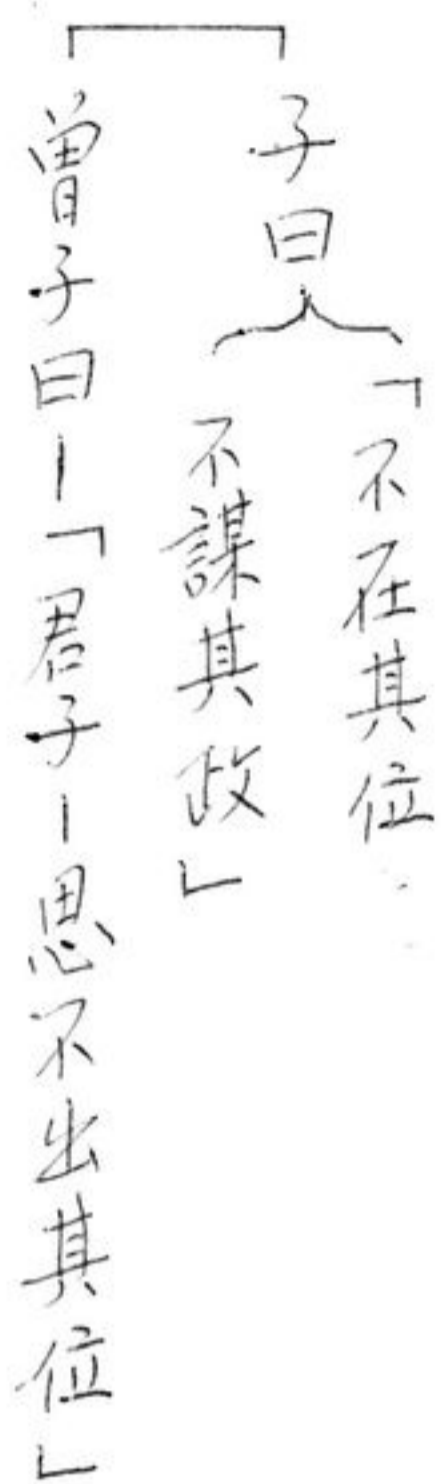 子曰
「不在其位
不謀其政」
曾子曰－「君子－思不出其位」